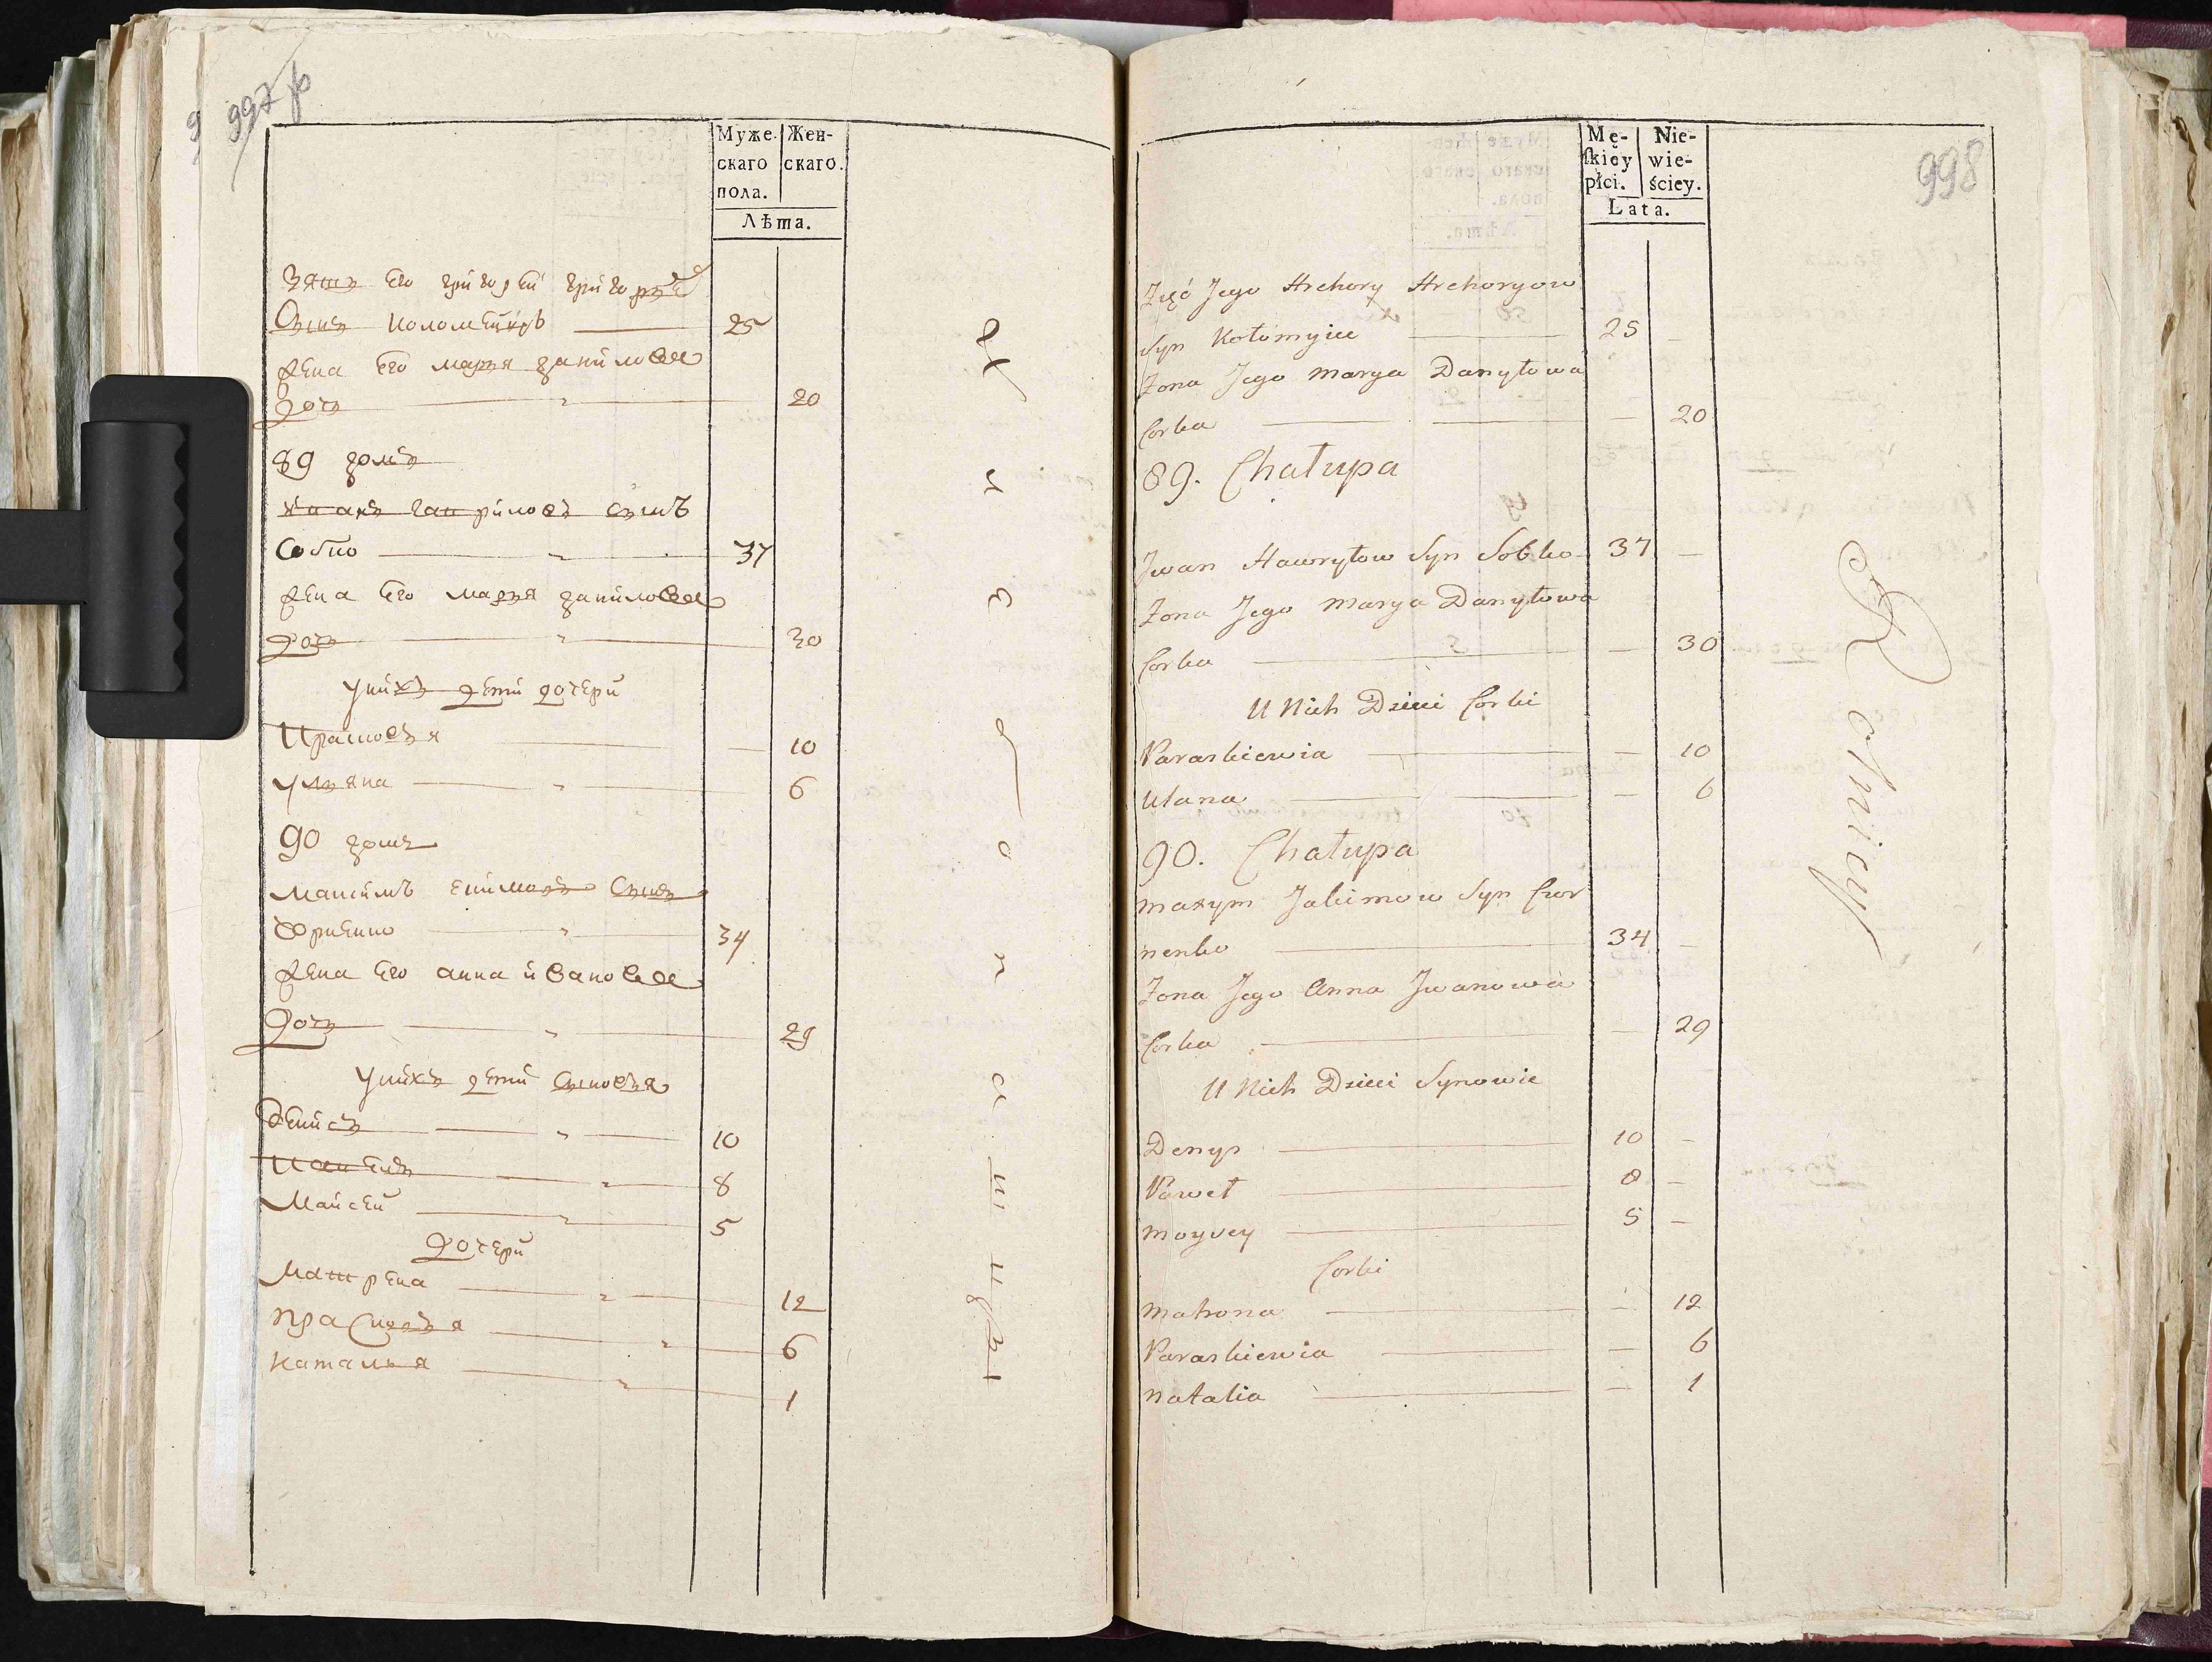 997 об
Муже-
скаго
пола.
Жен-
скаго.
Лѣта.
Зять его григорей григорьевъ
Сынъ коломейцъ 25
жена его марья данилова
дочь 20
89 домъ
иванъ гаврiловъ сынъ
Собко 37
жена его марья данилова
дочь 30
унихъ дети дочери
Прасковья 10
ульяна 6
90 домъ
максимъ екимовъ Сынъ
жена его анна иванова
34
Дочь 29
унихъ дети сыновья
Денисъ 10
Павелъ 8
Майсей 5
Дочери
Матрена 12
праСковья 6
наталья 1
998
Mę-
skiey
płci.
Nie-
wie-
ściey.
Lata.
Zięć Jego Hrehory Hrehoryow
Syn Kołomyiec 25
Zona Jego Marya Danyłowa
Corka 20
89. Chałupa
Jwan Hawryłow Syn Sobko 37
Zona Jego Marya Danyłowa
Corka 30
U Nich Dzieci Corki
Paraskiewia 10
Ulana 6
90. Chałupa
Maxym Jakimow Syn Czor
nenko 34
Zona Jego Anna Jwanowa
Corka 29
U Nich Dzieci Synowie
Denys 10
Paweł 8
Moysey 5
Corki
Matrona 12
Paraskiewia 6
Natalia 1
Rolnicy